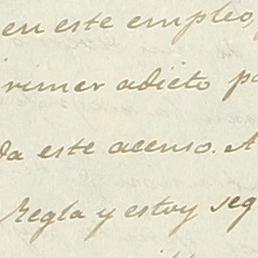 en este empleo,
primer adicto po
da este acenso. A
Regla y estoy seg